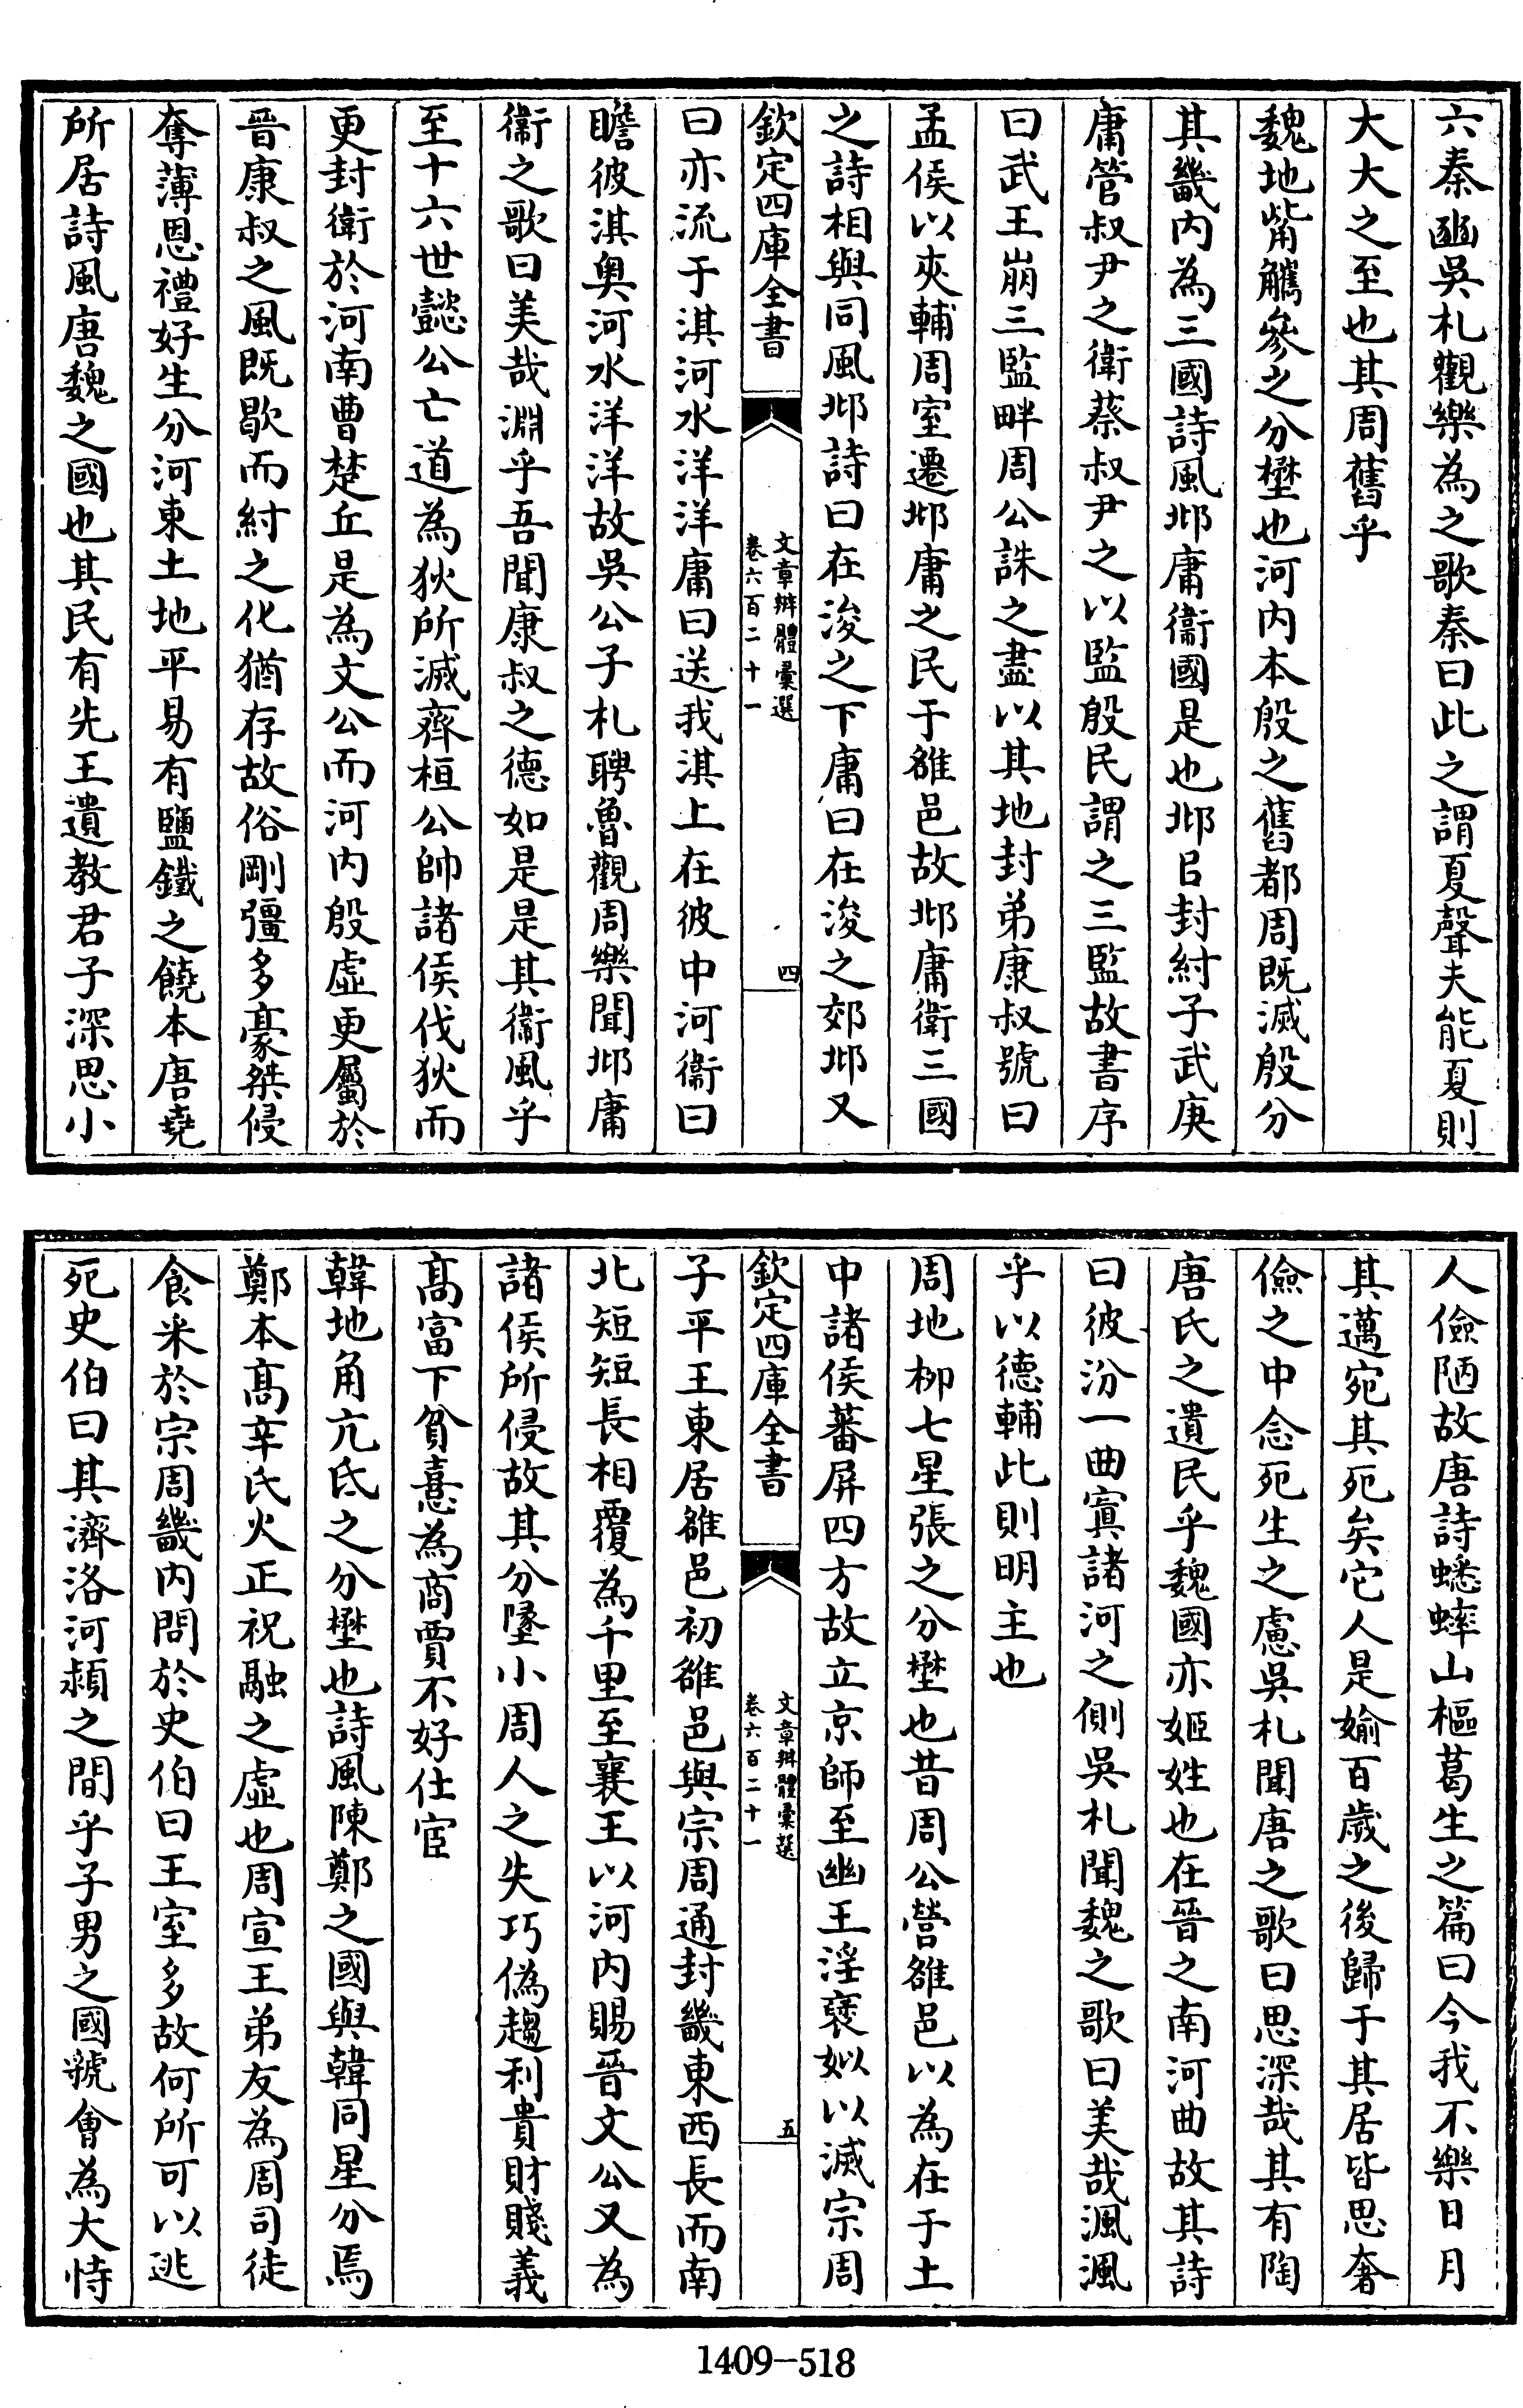 六秦豳吳札觀樂為之歌秦曰此之謂夏聲夫能夏則
大大之至也其周舊乎
魏地觜觿參之分壄也河内本殷之舊都周既滅殷分
其畿内為三國詩風邶庸衞國是也邶㠯封紂子武庚
庸管叔尹之衛蔡叔尹之以監殷民謂之三監故書序
曰武王崩三監畔周公誅之盡以其地封弟康叔號曰
孟侯以夾輔周室遷邶庸之民于雒邑故邶庸衛三國
之詩相與同風邶詩曰在浚之下庸曰在浚之郊邶又
欽定四庫全書
文章辨體彙選
卷六百二十一
四
曰亦流于淇河水洋洋庸曰送我淇上在彼中河衞曰
瞻彼淇奥河水洋洋故吳公子札聘魯觀周樂聞邶庸
衞之歌曰美哉淵乎吾聞康叔之德如是是其衞風乎
至十六世懿公亡道為狄所滅齊桓公帥諸侯伐狄而
更封衛於河南曹楚丘是為文公而河内殷虛更屬於
晉康叔之風既歇而紂之化猶存故俗剛彊多豪桀侵
奪薄恩禮好生分河東土地平易有鹽鐵之饒本唐堯
所居詩風唐魏之國也其民有先王遺教君子深思小
人儉陋故唐詩蟋蟀山樞葛生之篇曰今我不樂日月
其邁宛其死矣它人是媮百歲之後歸于其居皆思奢
儉之中念死生之慮吳札聞唐之歌曰思深哉其有陶
唐氏之遺民乎魏國亦姬姓也在晉之南河曲故其詩
曰彼汾一曲寘諸河之側吳札聞魏之歌曰美哉渢渢
乎以德輔此則明主也
周地柳七星張之分壄也昔周公營雒邑以為在于土
中諸侯蕃屏四方故立京師至幽王淫褒姒以滅宗周
欽定四庫全書
文章辨體彙選
卷六百二十一
五
子平王東居雒邑初雒邑與宗周通封畿東西長而南
北短短長相覆為千里至襄王以河内賜晉文公又為
諸侯所侵故其分墬小周人之失巧偽趨利貴財賤義
高富下貧憙為商賈不好仕宦
韓地角亢氐之分壄也詩風陳鄭之國與韓同星分焉
鄭本高辛氏火正祝融之虛也周宣王弟友為周司徒
食采於宗周畿内問於史伯曰王室多故何所可以逃
死史伯曰其濟洛河潁之間乎子男之國虢會為大恃
1409-518